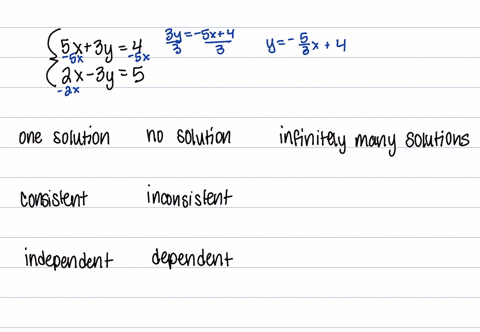 5x+3y=4 3y=-5x+4 y=-5/3x+4
-5x -5x 3 3
2x-3y=5
-2x
one solution no solution infinitely many solutions
consistent inconsistent
independent dependent